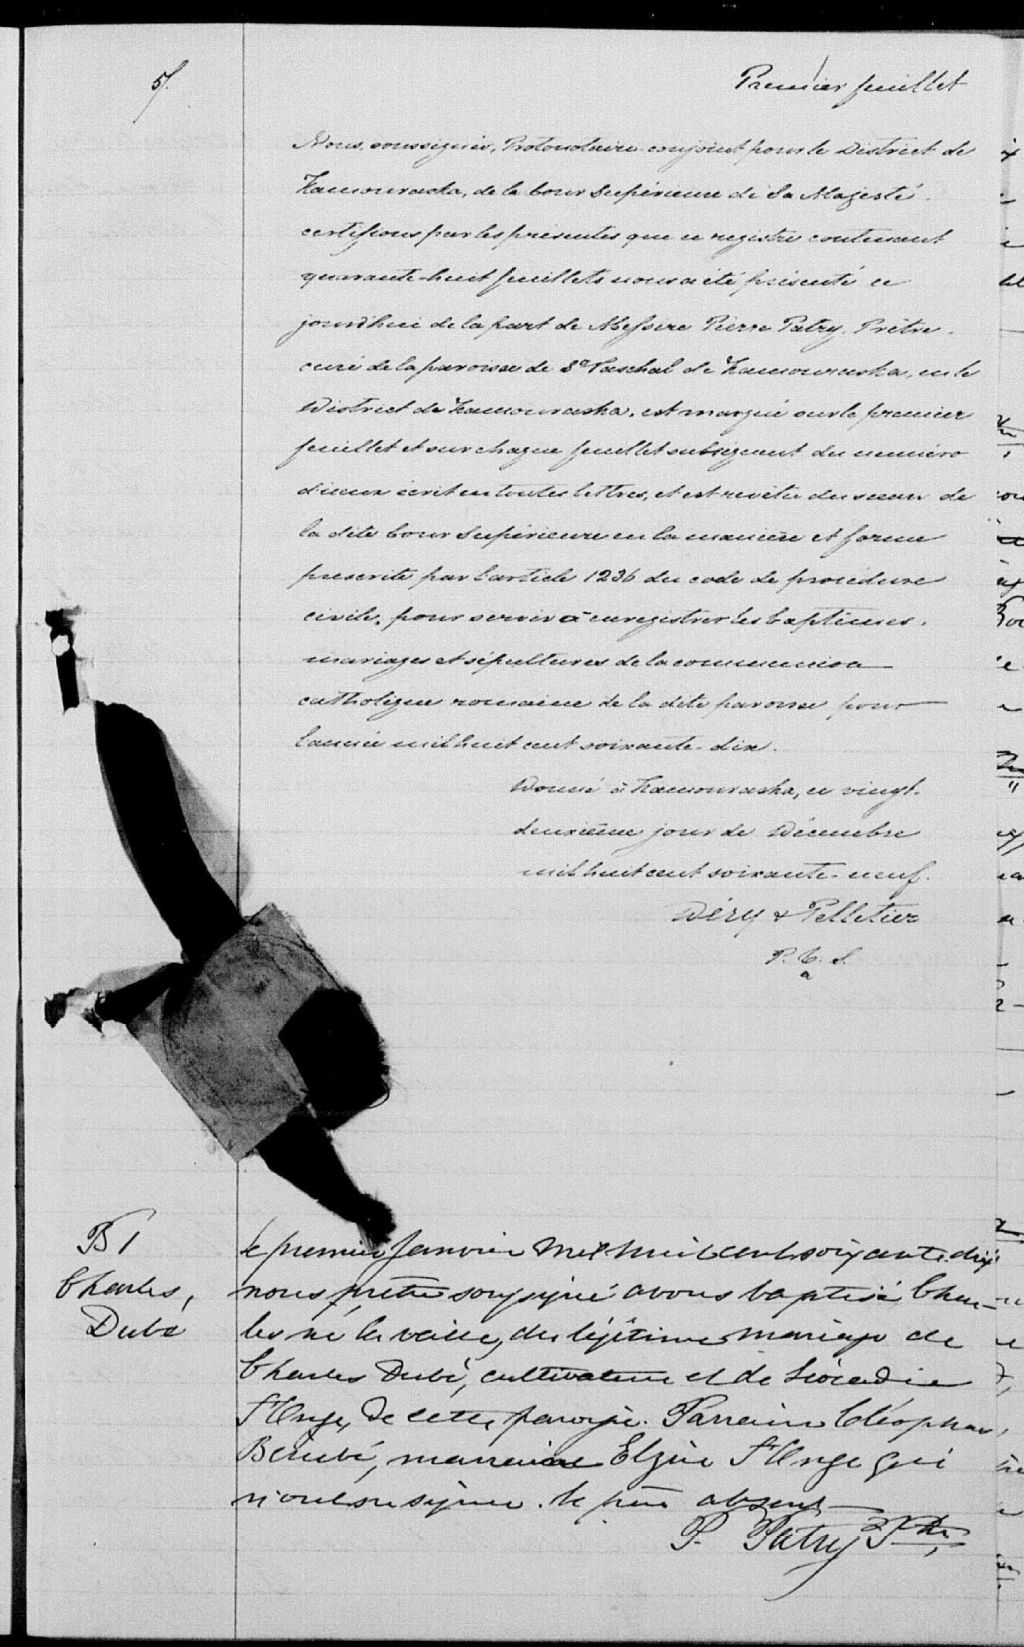 5/.
Premier feuillet
Nous, soussignés, Protonotaire conjoint pour le District de
Kamouraska, de la Cour Supérieure de Sa Majesté,
certifions par les présentes que ce registre contenant
quarante-huit feuillets nous a été présenté ce
jourd'hui de la part de Messire Pierre Patry, Prêtre,
curé de la paroisse de St Paschal de Kamouraska, en le
District de Kamouraska, est marqué sur le premier
feuillet et sur chaque feuillet subséquent du numéro
d'iceux écrit en toutes lettres, et est revêtu du sceau de
la dite Cour Supérieure en la manière et forme
prescrite par l'article 1236 du code de procédure
civile, pour servir à enregistrer les baptêmes,
mariages et sépultures de la communion
catholique romaine de la dite paroisse pour
l'année mil huit cent soixante-dix.
Donné à Kamouraska, ce vingt-
deuxième jour de Décembre
mil huit cent soixante-neuf.
Déry & Pelletier
P. C. S.
B 1
Charles,
Dubé
le premier Janvier Mil huit cent soixante-dix
nous prêtre soussigné avons baptisé Char-
les né la veille, du légitime mariage de
Charles Dubé, cultivateur et de Léocadie
St Onge, de cette paroisse. Parrain Cléophas
Bérubé, marraine Elzire St Onge qui
n'ont su signer. le père absent
P. Patry Ptre